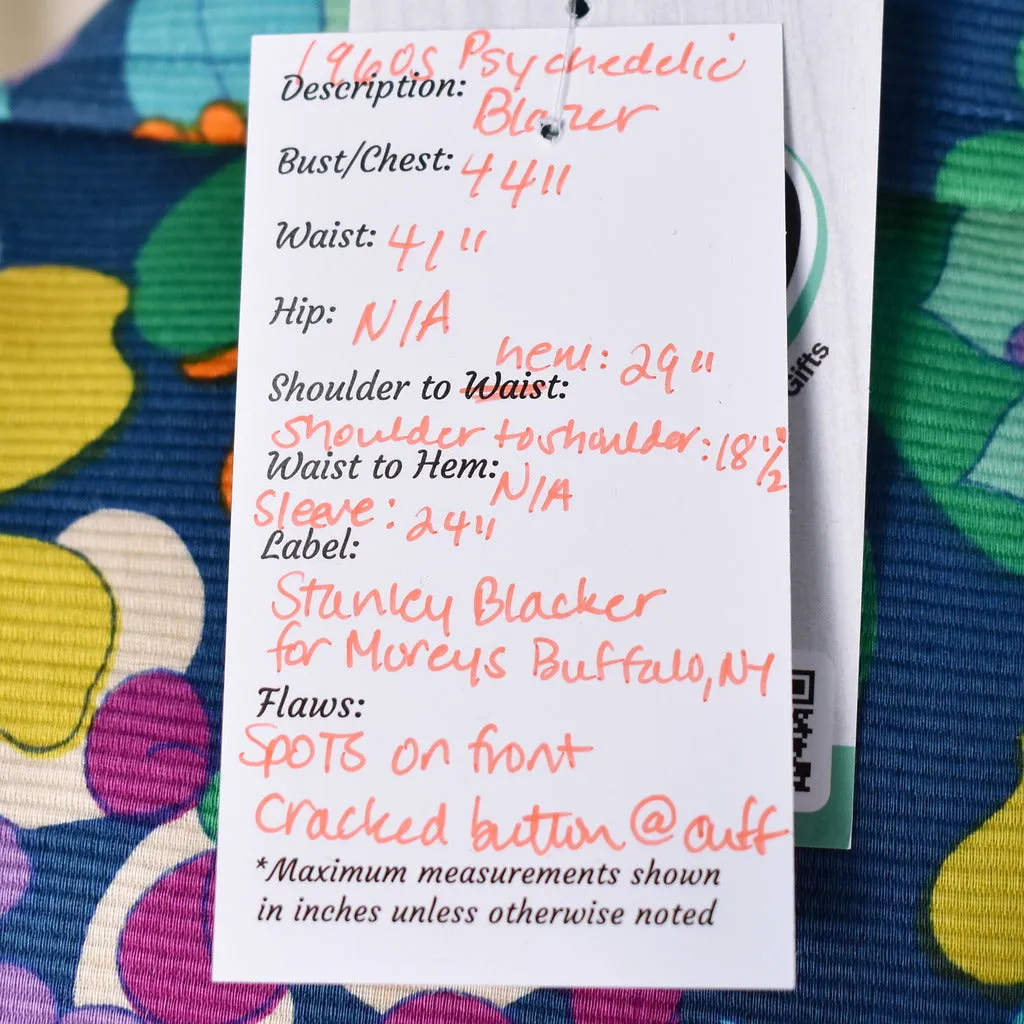 1960s Psychedelic
Description:
Blazer
Bust/Chest: 44"
Waist: 41"
Hip: N/A
hem: 29"
Shoulder to Waist:
Shoulder to shoulder: 18 1/2"
Waist to Hem: N/A
Sleeve: 24"
Label:
Stanley Blacker
for Moreys Buffalo, NY
Flaws:
SPOTS on front
Cracked button @ cuff
*Maximum measurements shown
in inches unless otherwise noted
Gifts